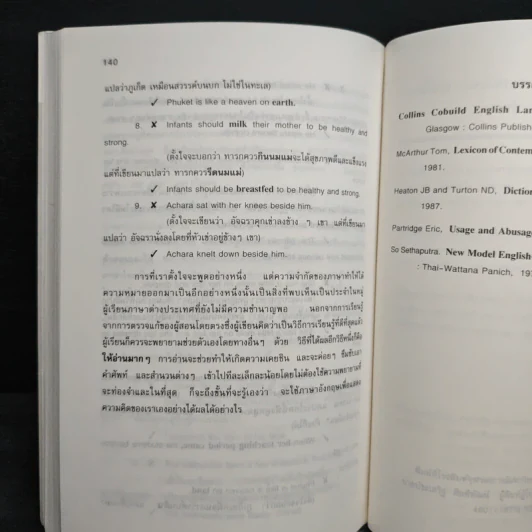 140
แปลว่าภูเก็ต เหมือนสวรรค์บนบก ไม่ใช่ในทะเล)
✓ (Phuket is like a heaven on earth.
8. ✗ Infants should milk their mother to be healthy and
strong.
(ตั้งใจจะบอกว่า ทารกควรกินนมแม่จะได้สุขภาพดีและแข็งแรง
แต่ที่เขียนมาแปลว่า ทารกควรรีดนมแม่)
✓ Infants should be breastfed to be healthy and strong.
9. ✗ Achara sat with her knees beside him.
(ตั้งใจจะเขียนว่า อัจฉราคุกเข่าลงข้าง ๆ เขา แต่ที่เขียนมา
แปลว่า อัจฉรานั่งลงโดยที่หัวเข่าอยู่ข้างๆ เขา)
✓ Achara knelt down beside him.
การที่เราตั้งใจจะพูดอย่างหนึ่ง แต่ความจำกัดของภาษาทำให้ได้
ความหมายออกมาเป็นอีกอย่างหนึ่งนั้นเป็นสิ่งที่พบเห็นเป็นประจำในหมู่
ผู้เรียนภาษาต่างประเทศที่ยังไม่มีความชำนาญพอ นอกจากการเรียนรู้
จากการตรวจแก้ของผู้สอนโดยตรงซึ่งผู้เขียนคิดว่าเป็นวิธีการเรียนรู้ที่ดีที่สุดแล้ว
ผู้เรียนก็ควรจะพยายามช่วยตัวเองโดยทางอื่นๆ ด้วย วิธีที่ได้ผลอีกวิธีหนึ่งก็คือ
ให้อ่านมากๆ การอ่านจะช่วยทำให้เกิดความเคยชิน และจะค่อยๆ ซึมซับเอา
คำศัพท์ และสำนวนต่างๆ เข้าไปทีละเล็กละน้อยโดยไม่ต้องใช้ความพยายามที่
จะท่องจำและในที่สุด ก็จะถึงขั้นที่จะรู้เองว่า จะใช้ภาษาอังกฤษเพื่อแสดง
ความคิดของเราเองอย่างได้ผลได้อย่างไร
Collins Cobuild English
Glasgow : Collins
McArthur Tom, Lexicon of
1981.
Heaton JB and Turton ND,
1987.
Partridge Eric, Usage and
So Sethaputra. New Model
: Thai-Wattana Panich,